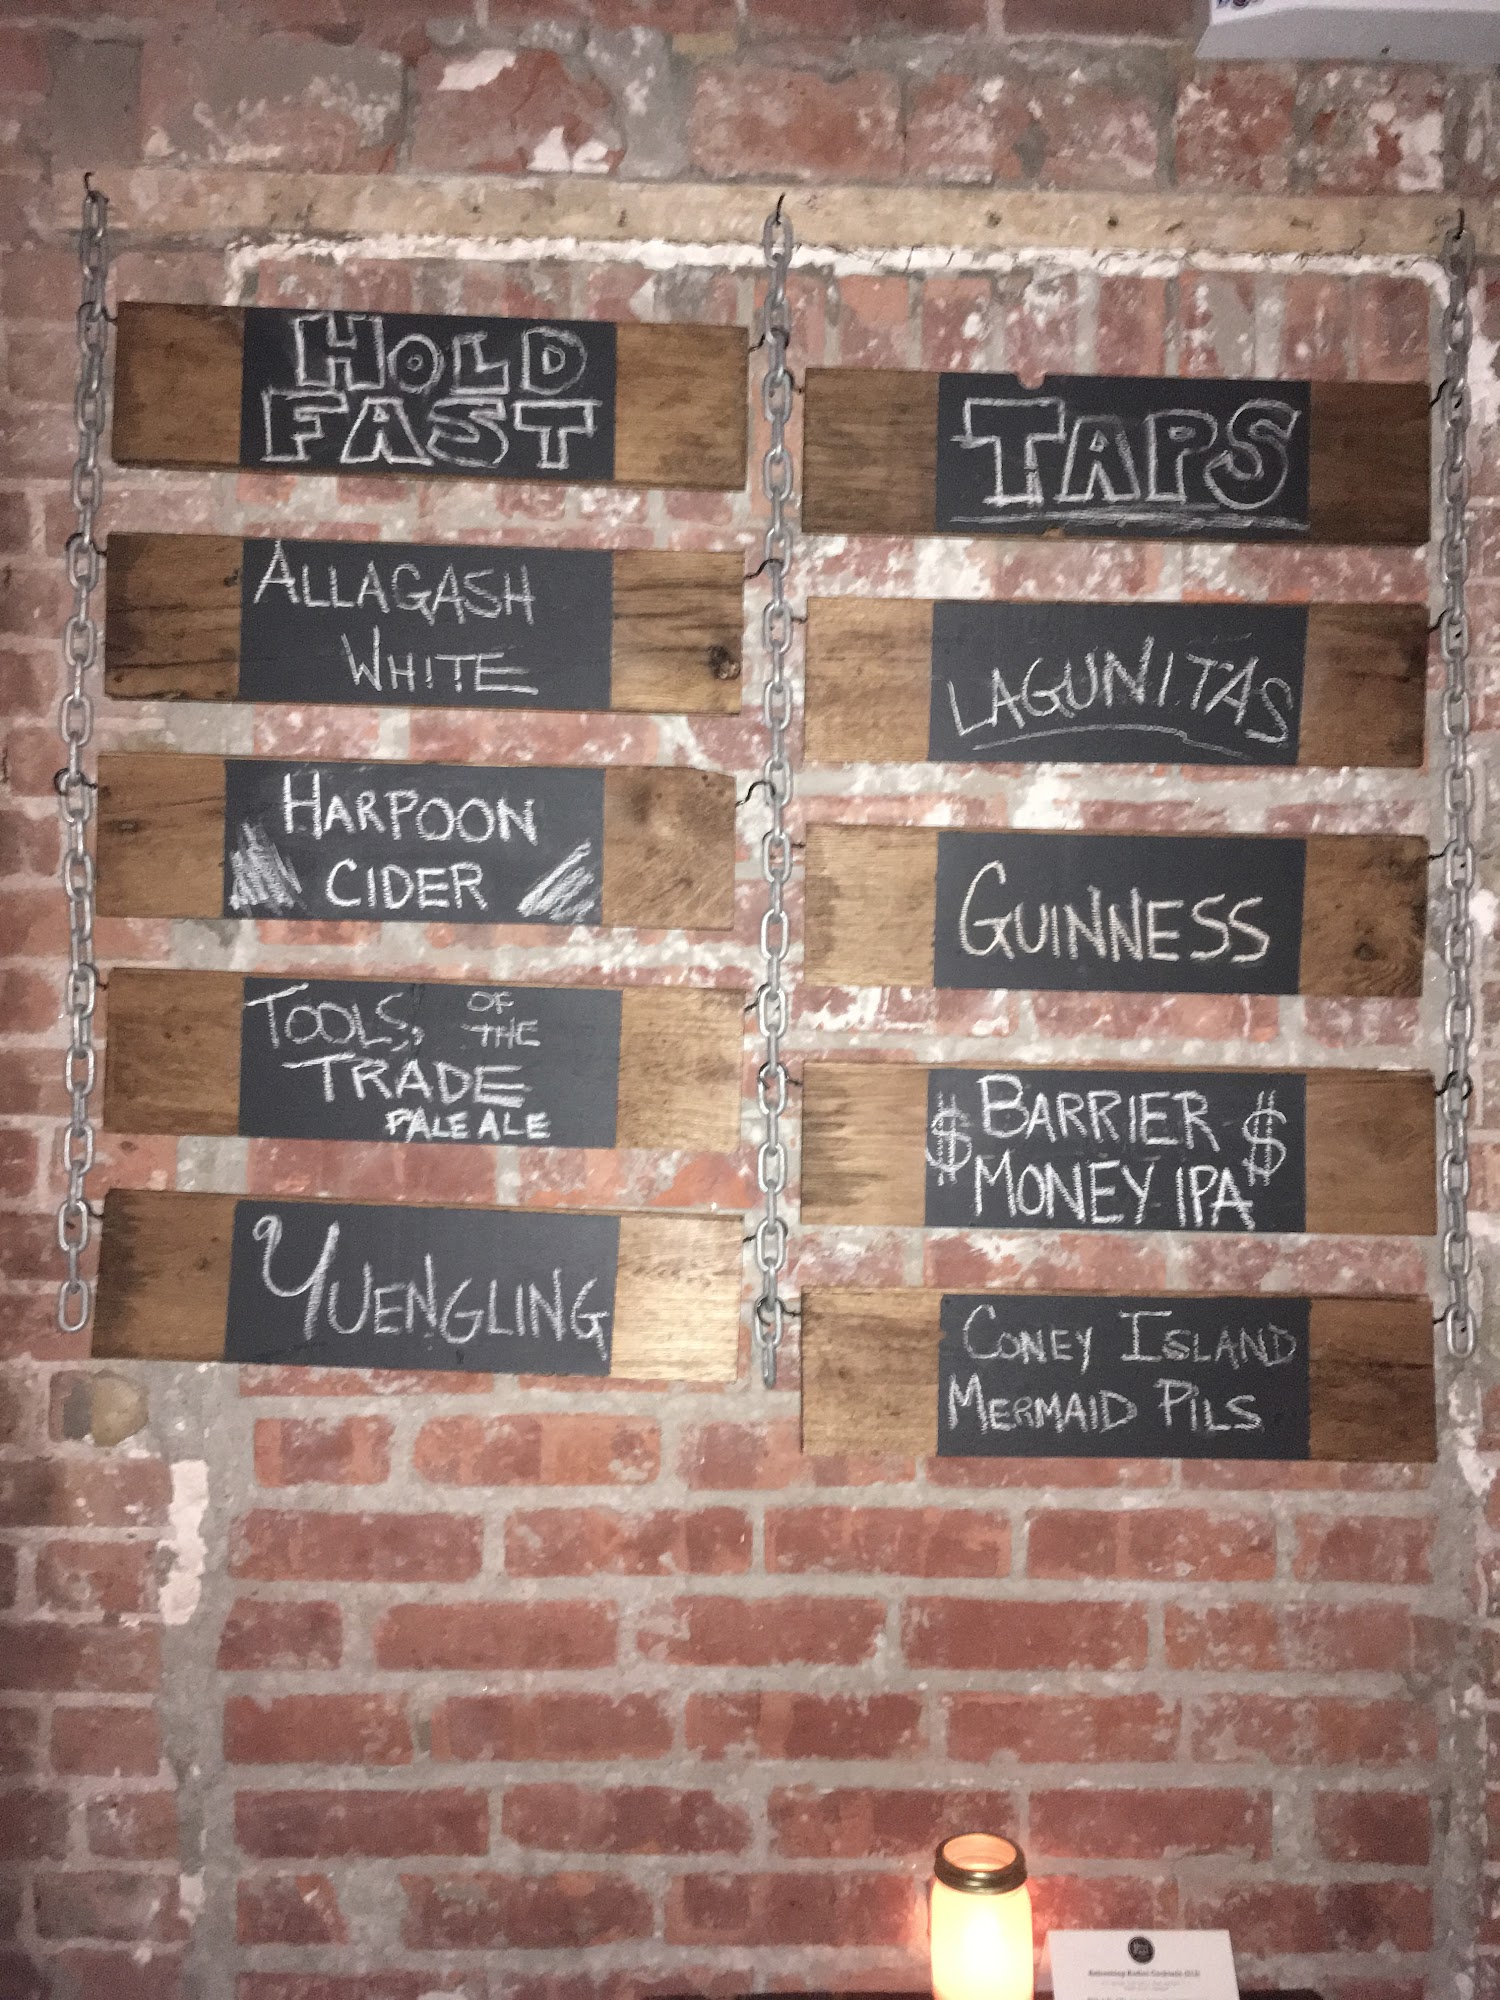 HOLD
FAST
TAPS
ALLAGASH
WHITE
LAGUNITAS
HARPOON
CIDER
GUINNESS
TOOLS OF
THE
TRADE
PALE ALE
$ BARRIER $
MONEY IPA
YUENGLING
CONEY ISLAND
MERMAID PILS